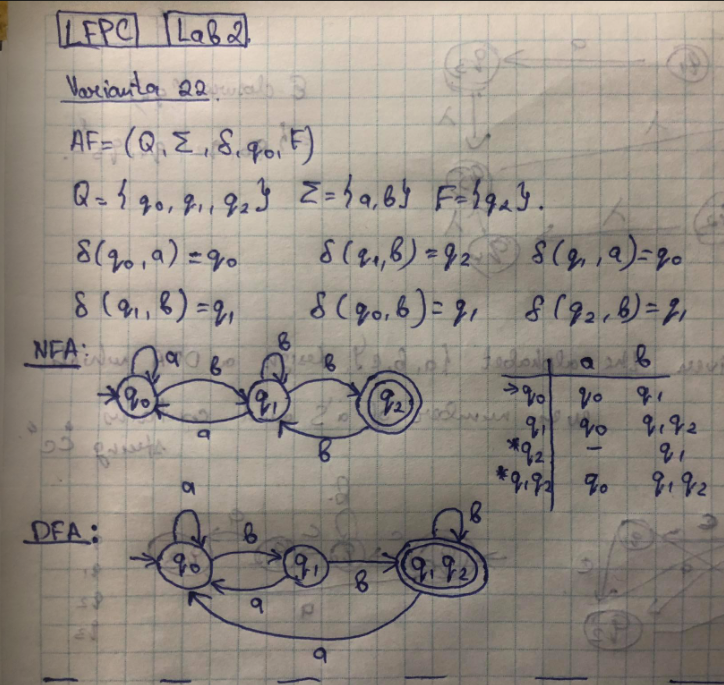 LFPC Lab 2
Varianta 22.
AF=(Q, Σ, δ, q₀, F)
Q={q₀, q₁, q₂} Σ={a,b} F={q₂}.
δ(q₀, a)=q₀ δ(q₁, b)=q₂ δ(q₁, a)=q₀
δ(q₁, b)=q₁ δ(q₀, b)=q₁ δ(q₂, b)=q₁
NFA:
a b b b
→ q₀ q₁ q₂
a b
a b
→q₀ q₀ q₁
q₁ q₀ q₁q₂
*q₂ – q₁
*q₁q₂ q₀ q₁q₂
DFA:
a b b
→ q₀ q₁ q₁q₂
a b
a